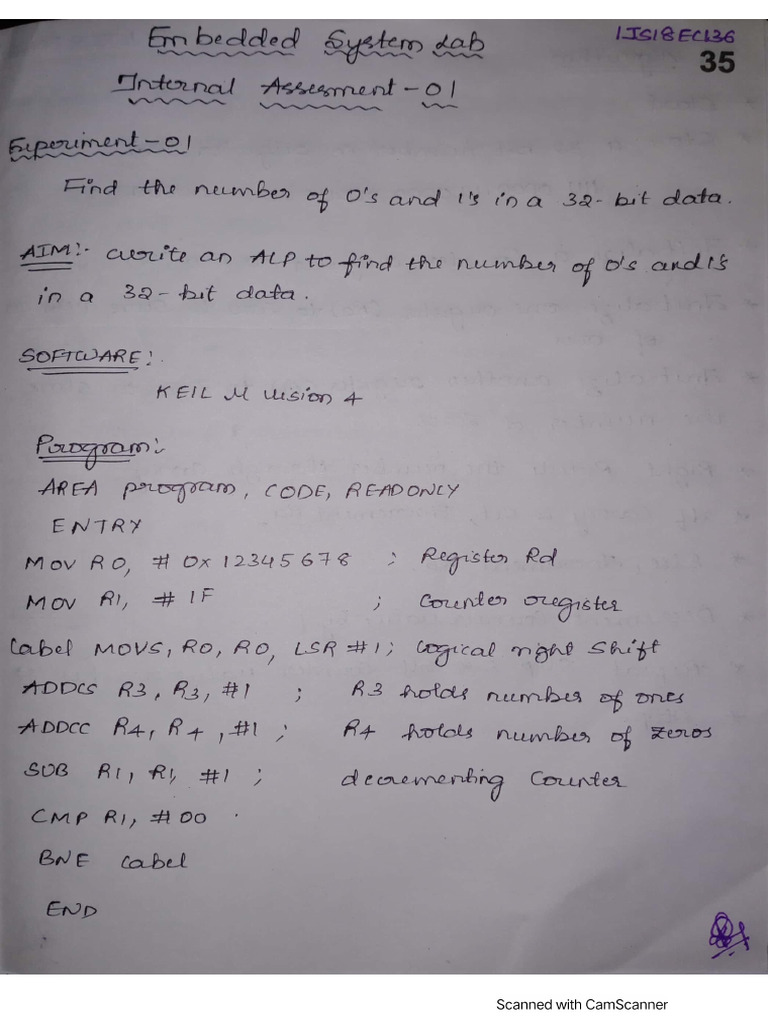 Embedded System Lab
1JS18EC136
35
Internal Assesment - 01
Experiment - 01
Find the number of 0's and 1's in a 32-bit data.
AIM:- write an ALP to find the number of 0's and 1's
in a 32-bit data.
SOFTWARE:
KEIL M Vision 4
Program:
AREA program, CODE, READONLY
ENTRY
MOV R0, # 0x12345678 ; Register Rd
MOV R1, # 1F ; Counter register
Label MOVS, R0, R0, LSR #1; Logical right Shift
ADDCS R3, R3, #1 ; R3 holds number of ones
ADDCC R4, R4, #1 ; R4 holds number of zeros
SUB R1, R1, #1 ; decrementing Counter
CMP R1, #00
BNE Label
END
Scanned with CamScanner